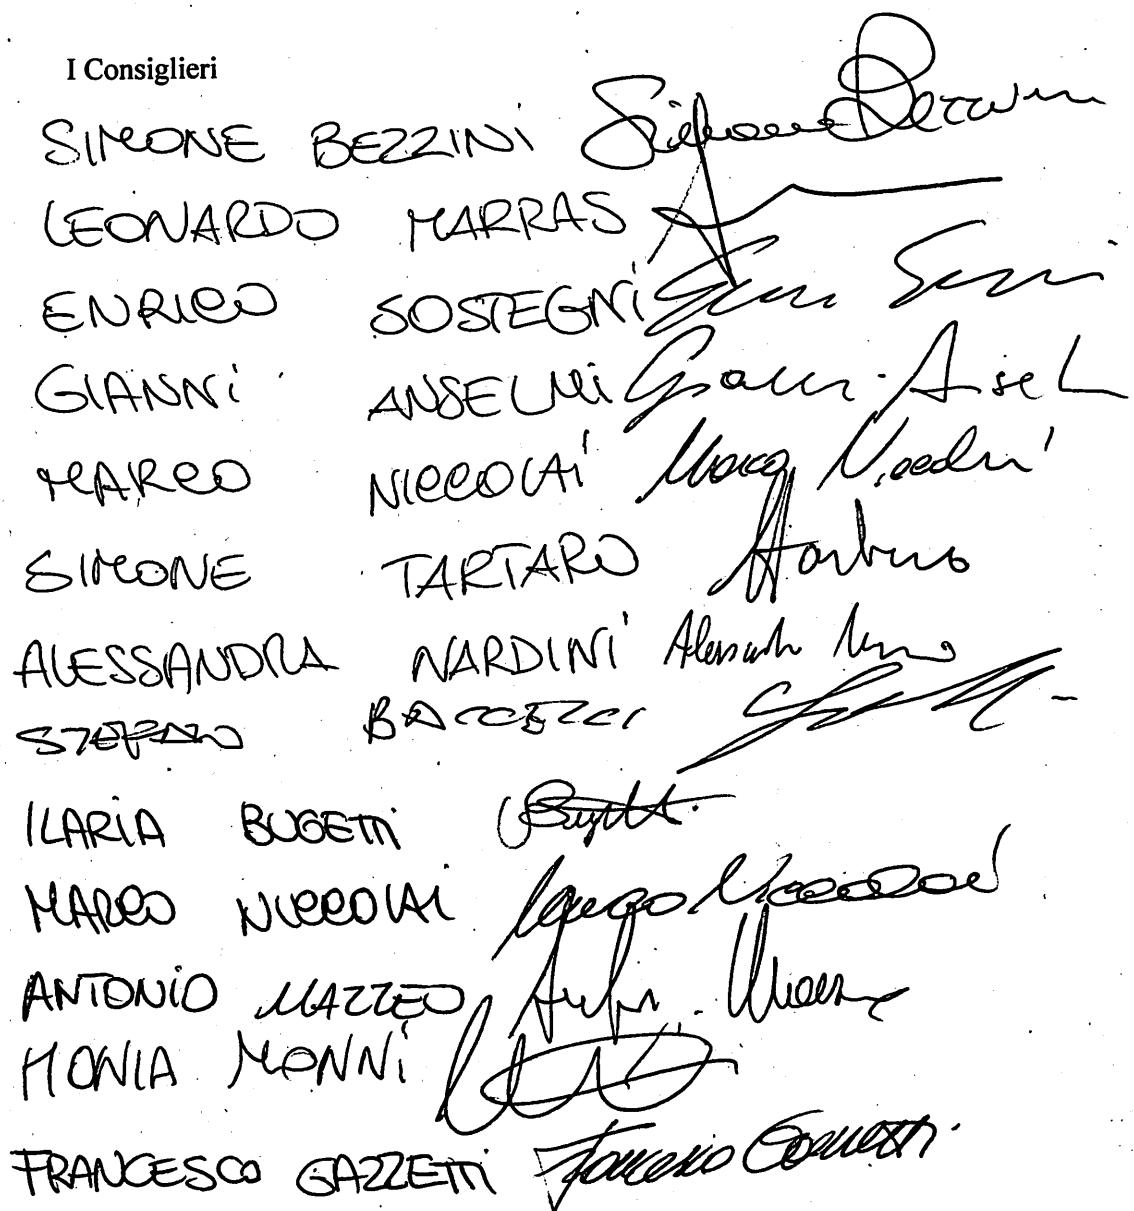 I Consiglieri
SIMONE BEZZINI Simone Bezzini
LEONARDO MARRAS
ENRICO SOSTEGNI
GIANNI ANSELMI Gianni Ansel
MARCO NICCOLAI Marco Niccolai
SIMONE TARTARO Startaro
ALESSANDRA NARDINI Alessandra
STEFANO BACCELLI
ILARIA BUGETTI
MARCO NICCOLAI Marco Niccolai
ANTONIO MAZZEO
MONIA MONNI
FRANCESCO GAZZETTI Francesco Gazzetti